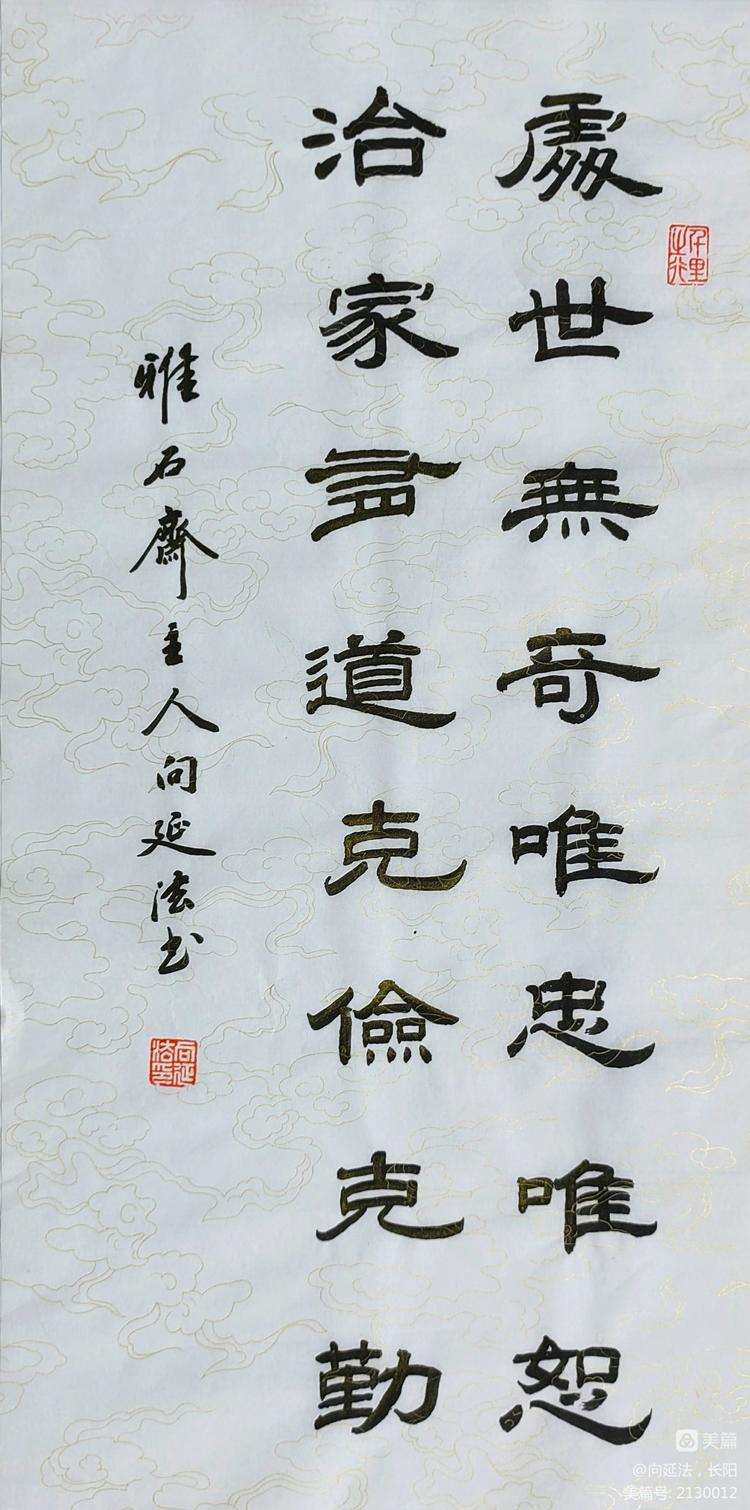 千里之行
處世無奇唯忠唯恕
治家有道克儉克勤
雅石齋主人向延法书
向延法印
美篇
@向延法，长阳
美篇号: 2130012